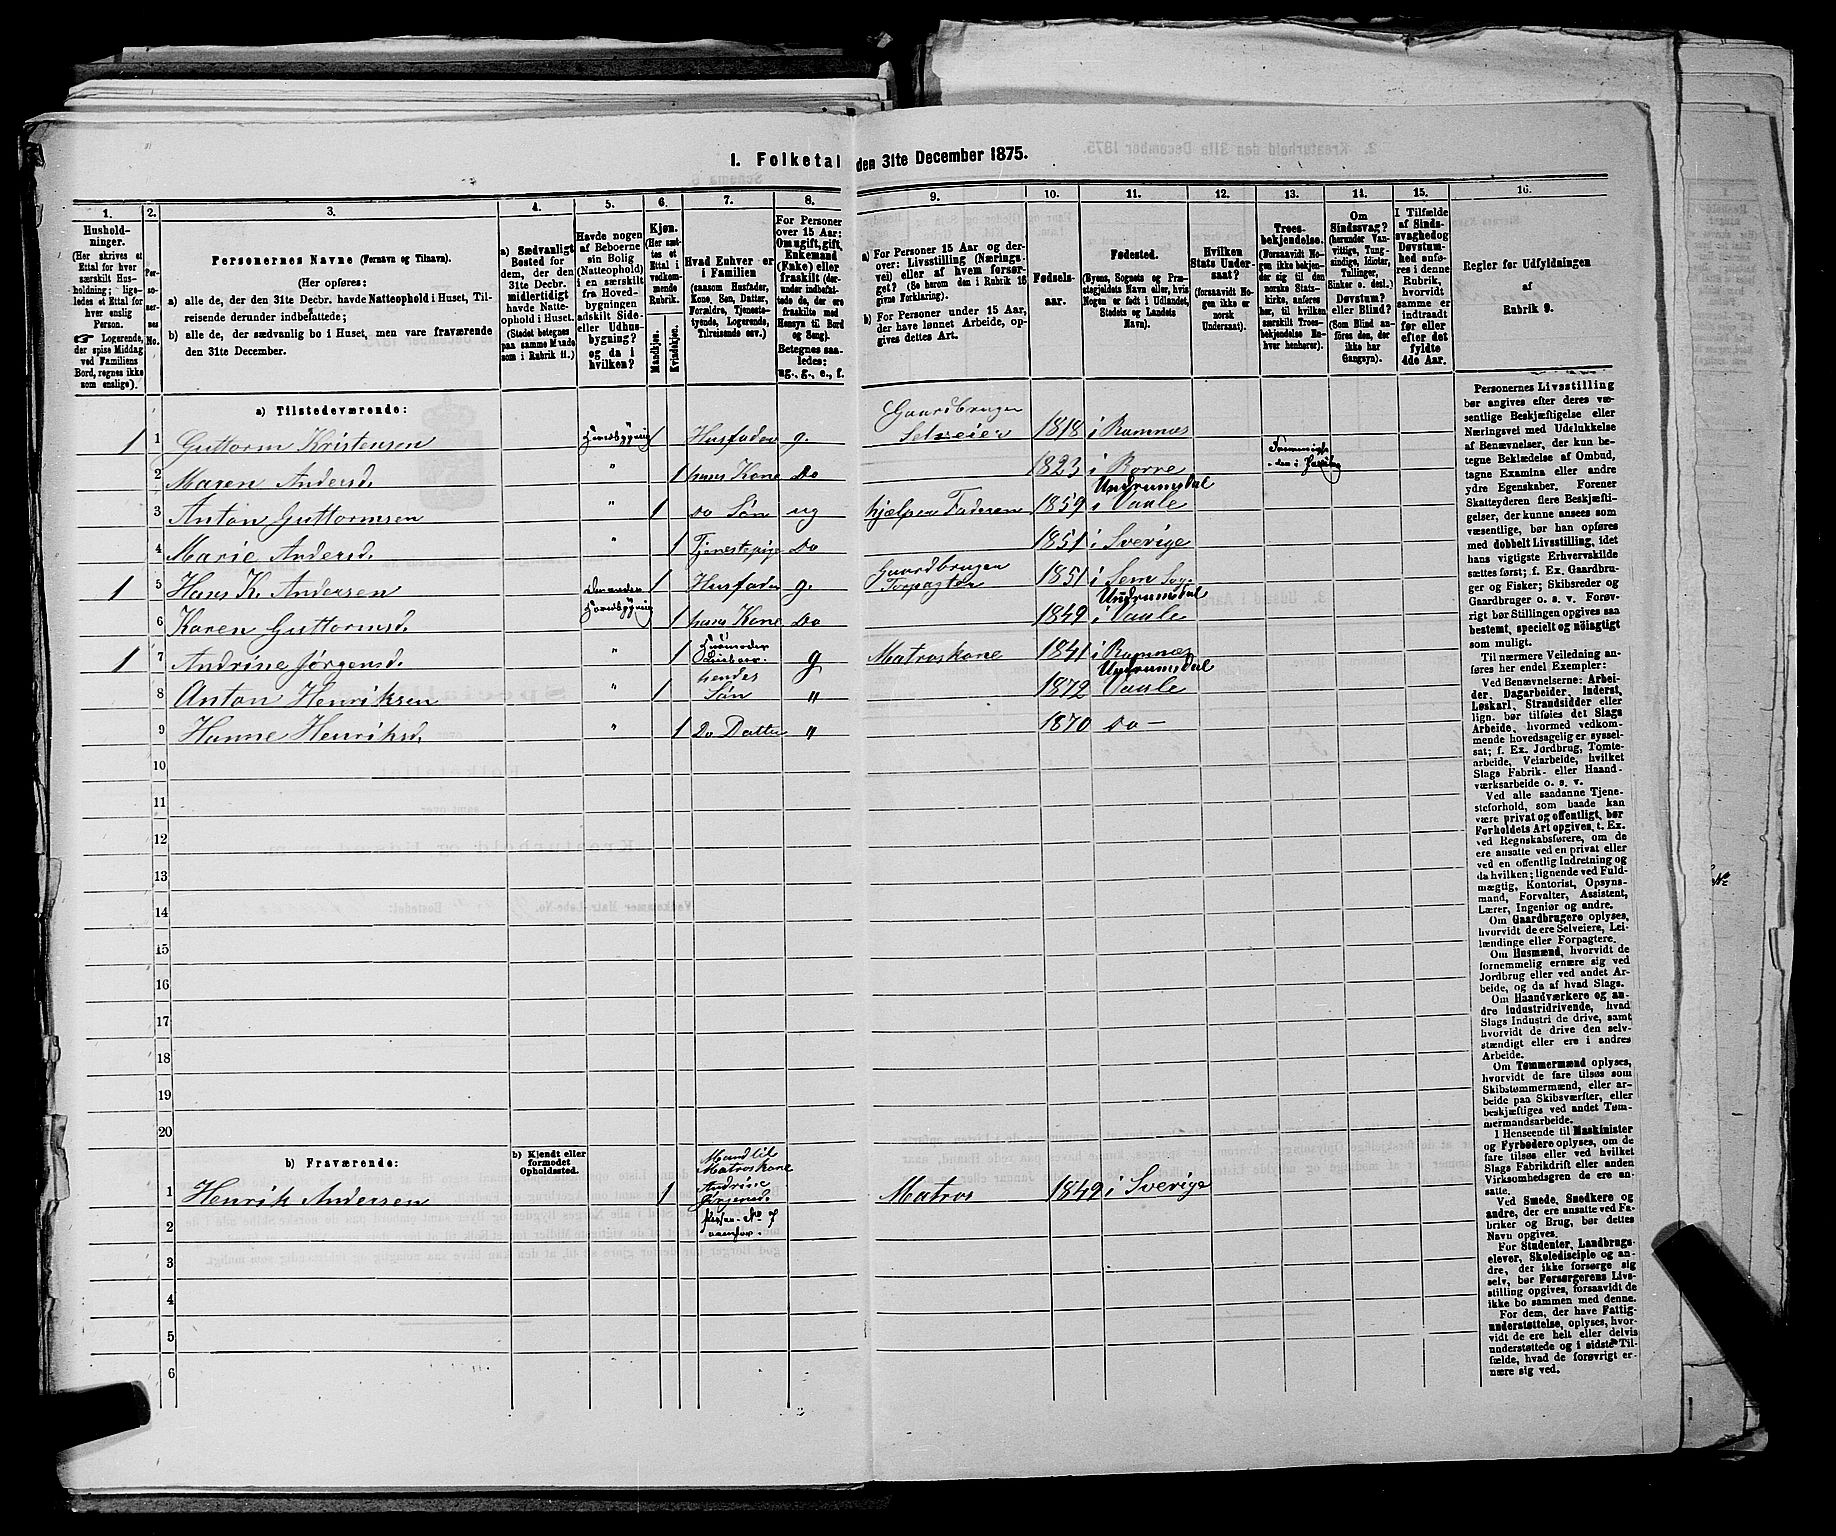 1. Folketal den 31te December 1875.
1. 2. 3. 4. 5. 6. 7. 8. 9. 10. 11. 12. 13. 14. 15. 16.
Husholdninger.
(Her skrives et
Ettal for hver
særskilt Husholdning;
ligeledes et Ettal for
hver enslig
Person.
☛ Logerende,
der spise Middag
ved Familiens
Bord, regnes ikke
som enslige).
Personernes No.
Personernes Navne (Fornavn og Tilnavn).
(Her opføres:
a) alle de, der den 31te Decbr. havde Natteophold i Huset, Tilreisende derunder indbefattede;
b) alle de, der sædvanlig bo i Huset, men vare fraværende
den 31te December.
a) Sædvanligt
Bosted for
dem, der den
31te Decbr.
midlertidigt
havde Natteophold
i Huset.
(Stedet betegnes
paa samme Maade
som i Rubrik 11.)
Havde nogen
af Beboerne
sin Bolig
(Natteophold)
i en særskilt
fra Hovedbygningen
adskilt Side-
eller Udhusbygning?
og da i
hvilken?
Kjøn.
(Her sættes
et Ettal i
vedkommende
Rubrik.
Mandkjøn.
Kvindekjøn.
Hvad Enhver er
i Familien
(saasom Husfader,
Kone, Søn, Datter,
Forældre, Tjenestetyende,
Logerende,
Tilreisende osv.)
For Personer
over 15 Aar:
Om ugift, gift,
Enkemand
(Enke) eller
fraskilt
Betegnes saaledes:
ug., g., e., f.
a) For Personer 15 Aar og derover:
Livsstilling (Næringsvei)
eller af hvem forsørget
(Se herom den i Rubrik 16
givne Forklaring).
b) For Personer under 15 Aar,
der have lønnet Arbeide, opgives
dettes Art.
Fødselsaar.
Fødested.
(Byens, Sognets og Præstegjeldets
Navn eller, hvis
Nogen er født i Udlandet,
Stedets og Landets
Navn).
Hvilken
Stats Undersaat?
(forsaavidt Nogen
ikke er
norsk
Undersaat).
Troesbekjendelse.
(Forsaavidt Nogen
ikke bekjender
sig til den
norske Statskirke,
anføres
her, til hvilken
særskilt Troesbekjendelse
han
hver henhører).
Om
Sindssvag?
(herunder Vanvittige,
Tungsindige,
Idioter,
Tullinger,
Sinker o. desl.)
Døvstum?
eller Blind?
(Som Blind anføres
den, der
ikke har
Gangsyn).
I Tilfælde
af Sindssvaghed og
Døvstumhed
anføres
i denne
Rubrik,
hvorvidt
samme er
indtraadt
før eller
efter det
fyldte
4de Aar.
Regler for Udfyldningen
af
Rubrik 9.
a) Tilstedeværende:
1 1 Guttorm Kristensen 1 Husfader g. Gaardbruger Selveier 1818 i Ramnæs
2 Maren Andersd. " 1 hans Kone Do 1823 i Borre
3 Anton Guttormsen " 1 Do Søn ug hjelper Faderen 1859 Undrumsdal i Vaale
4 Marie Andersd. " 1 Tjenestepige Do 1851 i Sverige
1 5 Hans K. Andersen 1 Husfader g. Gaardbruger Forpagter 1851 i Sem Sog.
6 Karen Guttormsd. 1 hans Kone Do 1849 Undrumsdal i Vaale
1 7 Andrine Jørgensd. 1 g Matroskone 1841 i Ramnæs
8 Anton Henriksen " 1 hendes Søn " 1872 Undrumsdal Vaale
9 Hanne Henriksd. " 1 Do Datter " 1870 do —
10
11
12
13
14
15
16
17
18
19
20
b) Fraværende:
b) Kjendt eller
formodet
Opholdssted.
1 Henrik Andersen 1 Mand til Matroskone Andrine Jørgensd. Matros 1849 i Sverige
2
3
4
5
6
Personernes Livsstilling
bør angives efter deres væsentlige
Beskjæftigelse eller
Næringsvei med Udelukkelse
af Benævnelser, der kun betegne
Beklædelse af Ombud,
tagne Examina eller andre
ydre Egenskaber. Forener
Skatteyderen flere Beskjæftigelser,
der kunne ansees som
væsentlige, bør han opføres
med dobbelt Livsstilling, idet
hans vigtigste Erhvervskilde
sættes først; f. Ex. Gaardbruger
og Fisker; Skibsreder og
Gaardbruger o. s. v. Forøvrigt
bør Stillingen opgives saa
bestemt, specielt og nøiagtigt
som muligt.
Til nærmere Veiledning anføres
her endel Exempler:
Ved Benævnelserne: Arbeider,
Dagarbeider, Inderst,
Løskarl, Strandsidder eller
lign. bør tilføies det Slags
Arbeide, hvormed vedkommende
hovedsagelig er sysselsat;
f. Ex. Jordbrug, Tomtearbeide,
Veiarbeide, hvilket
Slags Fabrik- eller Haandværksarbeide
o. s. v.
Ved alle saadanne Tjenesteforhold,
som baade kan
være privat og offentligt, bør
Forholdets Art opgives, t. Ex.
ved Regnskabsførere, om de
ere ansatte ved en privat eller
ved en offentlig Indretning og
da hvilken; lignende ved Fuldmægtig,
Kontorist, Opsynsmand,
Forvalter, Assistent,
Lærer, Ingeniør og andre.
Om Gaardbrugere oplyses,
hvorvidt de ere Selveiere, Leilændinge
eller Forpagtere.
Om Husmænd, hvorvidt de
fornemmelig ernære sig ved
Jordbrug eller ved andet Arbeide,
og da af hvad Slags.
Om Haandværkere og andre
Industridrivende, hvad
Slags Industri de drive, samt
hvorvidt de drive den selvstændigt
eller ere i andres
Arbeide.
Om Tømmermænd oplyses,
hvorvidt de fare tilsøs som
Skibstømmermænd, eller arbeide
paa Skibsværfter, eller
beskjæftiges ved andet Tømmermandsarbeide.
I Henseende til Maskinister
og Fyrbødere oplyses, om de
fare tilsøs eller ved hvilket
Slags Fabrikdrift eller anden
Virksomhed de ere ansatte.
Ved Smede, Snedkere og
andre, der ere ansatte ved Fabriker
og Brug, bør dettes
Navn opgives.
For Studenter, Landbrugselever,
Skoledisciple og andre,
der ikke forsørge sig
selv, bør Forsørgerens Livsstilling
opgives, forsaavidt de
ikke bo sammen med denne.
For dem, der have Fattigunderstøttelse,
oplyses, hvorvidt
de ere helt eller delvis
understøttede og i sidste Tilfælde,
hvad de forøvrigt ernære
sig ved.